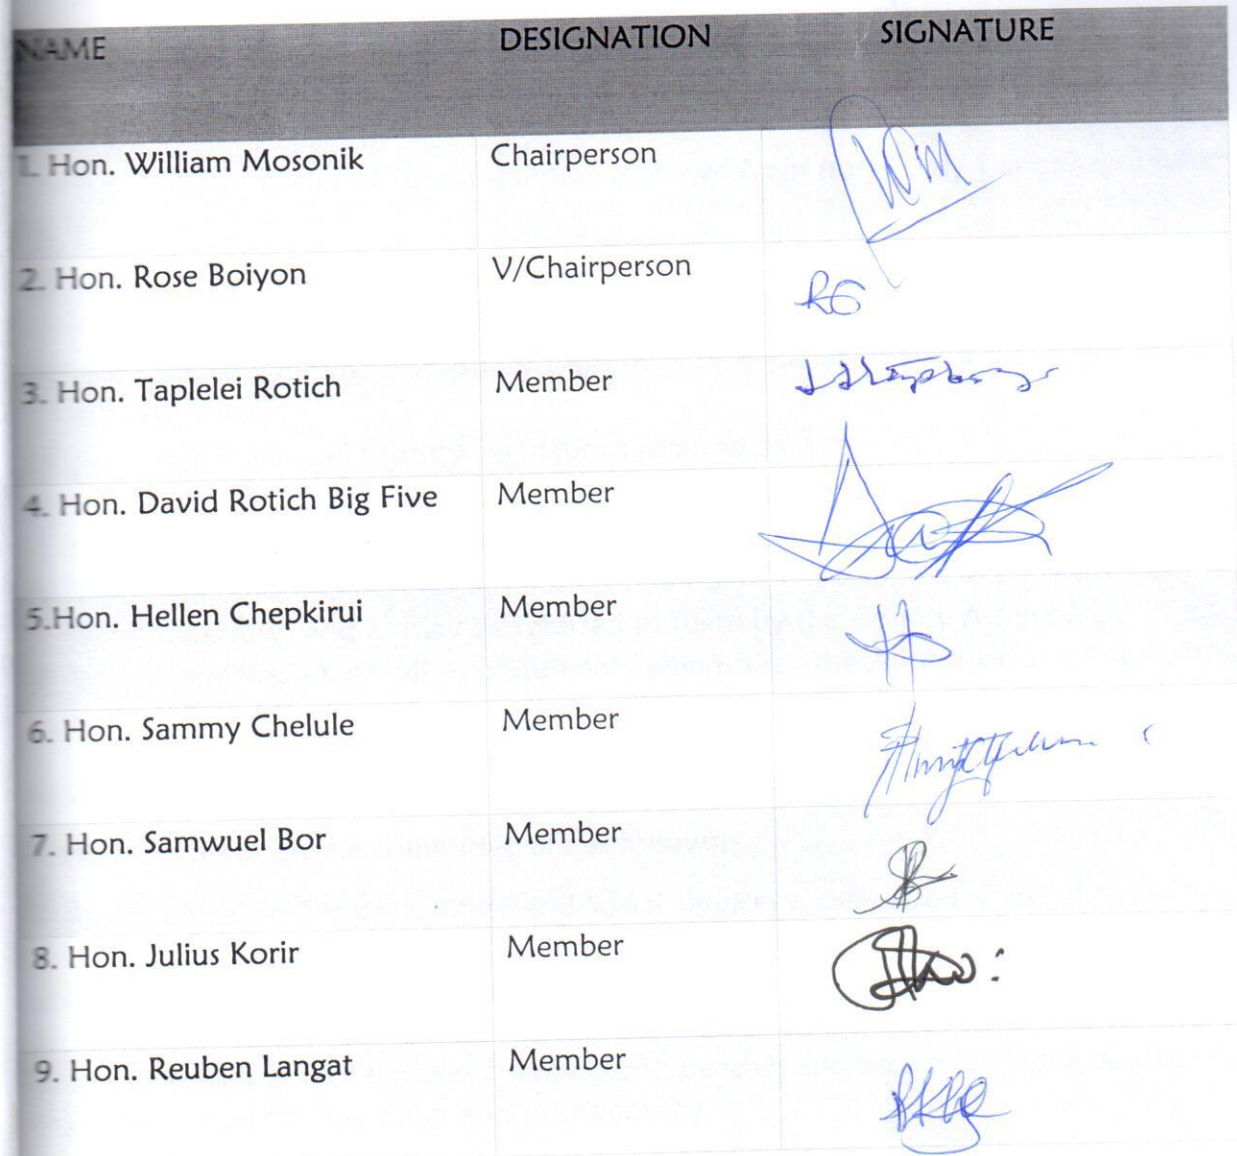 NAME DESIGNATION SIGNATURE
1. Hon. William Mosonik Chairperson
2. Hon. Rose Boiyon V/Chairperson
3. Hon. Taplelei Rotich Member
4. Hon. David Rotich Big Five Member
5.Hon. Hellen Chepkirui Member
6. Hon. Sammy Chelule Member
7. Hon. Samwuel Bor Member
8. Hon. Julius Korir Member
9. Hon. Reuben Langat Member